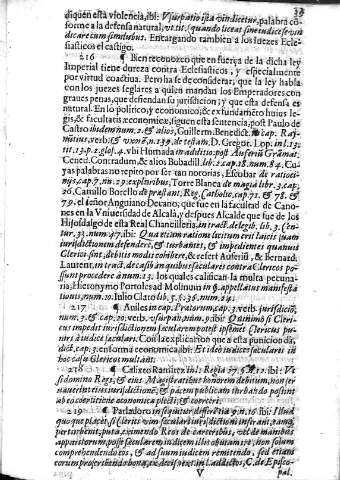 diquen esta violencia, ibi: Vsurpatio ista vindicetur, palabra cō
forme a la defensa natural, vt tit. (quando liceat sine iudice se vin
dicare cum similibus. Encargando tambien a los Iuezes Ecle-
siasticos el castigo.
216 ¶ Bien reconozco que en fuerça de la dicha ley
Imperial tiene dureza contra Eclesiasticos, y especialmente
por virtud coactiua. Pero ha se de considerar, que la ley habla
con los juezes seglares a quien mandan los Emperadores con
graues penas, que defiendan su jurisdicion; y que esta defensa es
natural. En lo politico, y economico, & ex fundamēto huius le-
gis, & facultatis œconomicæ, siguen esta sentencia, post Paulo de
Castro ibidem num. 2. & alios, Guillerm. Benedict. in cap. Ray-
nutius, verb.
tit. 13. p. 2. glos. 4. vbi Humada in additio. post Auferiū Grāmat.
Cened. Contradum, & alios Bubadill. lib. 2. cap. 18. num. 84. Cu-
yas palabras no repito por ser tan notorias, Escobar de ratioci-
nijs, cap. 7. nu. 29. ex pluribus, Torre Blanca de magia libr. 3. cap.
26. Camillo Borello de præstant. Reg. Catholic. cap. 71. & 78. &
79. el señor Anguiano Decano, que fue en la facultad de Cano-
nes en la Vniuersidad de Alcalà, y despues Alcalde que fue de los
Hijosdalgo de esta Real Chancilleria, in tract. de legib. lib. 3. Con-
tur. 33. num. 47. ibi: Qua etiam ratione licitum erit laicis suam
iurisdictionem defendere, & turbantes, & impedientes quamuis
Clerici sint, debitis modis cohibere, & refert Auferiū, & Bernard.
Laurent. in tract. de casib. in quibus seculares contra Clericos po-
ssunt procedere à num. 13. los quales califican la multa pecunia-
ria, Hieronymo Portoles ad Molinum in §. appellatus manifesta
tionis, num. 10. Iulio Claro lib. 5. §. 36. num. 24.
217 ¶ Auiles in cap. Prætorum, cap. 3. verb. jurisdiciō,
num. 3. & cap. 20. verb. vsurpan, num. 9. ibi: Quinimò si Cleri-
cus impedit iurisdictionem sæcularem potest ipsemet Clericus pu-
niri à iudice sæculari. Con la explicacion que a esta punicion dà,
dict. cap. 3. en forma economica, ibi: Et ideo iudices sæculares in
hoc casu Clericos mulctant.
218 ¶ Calixto Ramirez in l. Regia
si domino Regi, & eius Magistratibus honorem debitum, non ser
uauerint eius iurisdictionē, & pacem publicam turbando possint
sub eo coertitione economia plecti; & coerceri.
219 ¶ Parladoro in sequitur differētia 9. n. 16 ibi: Illud
quoque placet, si Clericus vim sæculari iurisdictioni inferant, eamq;
perturbent, puta, eximendo Reos de carceribus, vel de manibus
apparitorum, posse sæcularem iudicem illis obuiam ire, non solum
comprehendendo eos, & ad suum iudicem remitendo, sed etiam
eorum propter bendo bona, ex decis. text. in l. addictos, C. de Episco-
V pal.